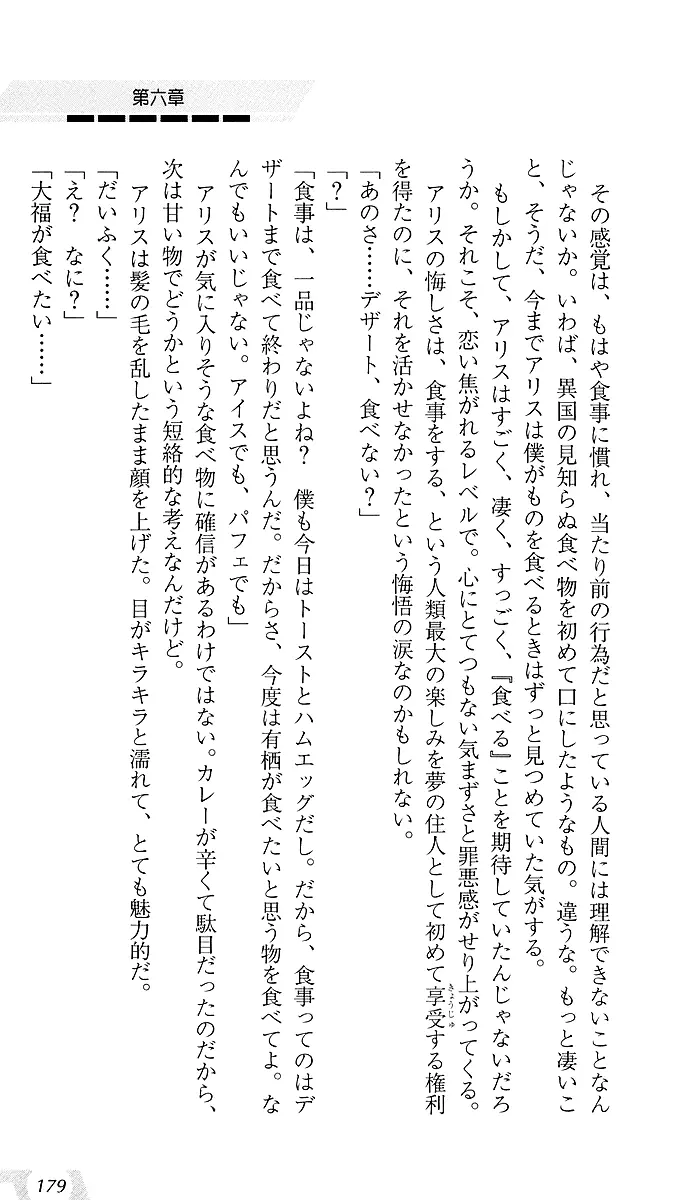 第六章
　その感覚は、もはや食事に慣れ、当たり前の行為だと思っている人間には理解できないことなん
じゃないか。いわば、異国の見知らぬ食べ物を初めて口にしたようなもの。違うな。もっと凄いこ
と、そうだ、今までアリスは僕がものを食べるときはずっと見つめていた気がする。
　もしかして、アリスはすごく、凄く、すっごく、『食べる』ことを期待していたんじゃないだろ
うか。それこそ、恋い焦がれるレベルで。心にとてつもない気まずさと罪悪感がせり上がってくる。
　アリスの悔しさは、食事をする、という人類最大の楽しみを夢の住人として初めて享受する権利
きょうじゅ
を得たのに、それを活かせなかったという悔悟の涙なのかもしれない。
「あのさ……デザート、食べない？」
「？」
「食事は、一品じゃないよね？　僕も今日はトーストとハムエッグだし。だから、食事ってのはデ
ザートまで食べて終わりだと思うんだ。だからさ、今度は有栖が食べたいと思う物を食べてよ。な
んでもいいじゃない。アイスでも、パフェでも」
　アリスが気に入りそうな食べ物に確信があるわけではない。カレーが辛くて駄目だったのだから、
次は甘い物でどうかという短絡的な考えなんだけど。
　アリスは髪の毛を乱したまま顔を上げた。目がキラキラと濡れて、とても魅力的だ。
「だいふく……」
「え？　なに？」
「大福が食べたい……」
179